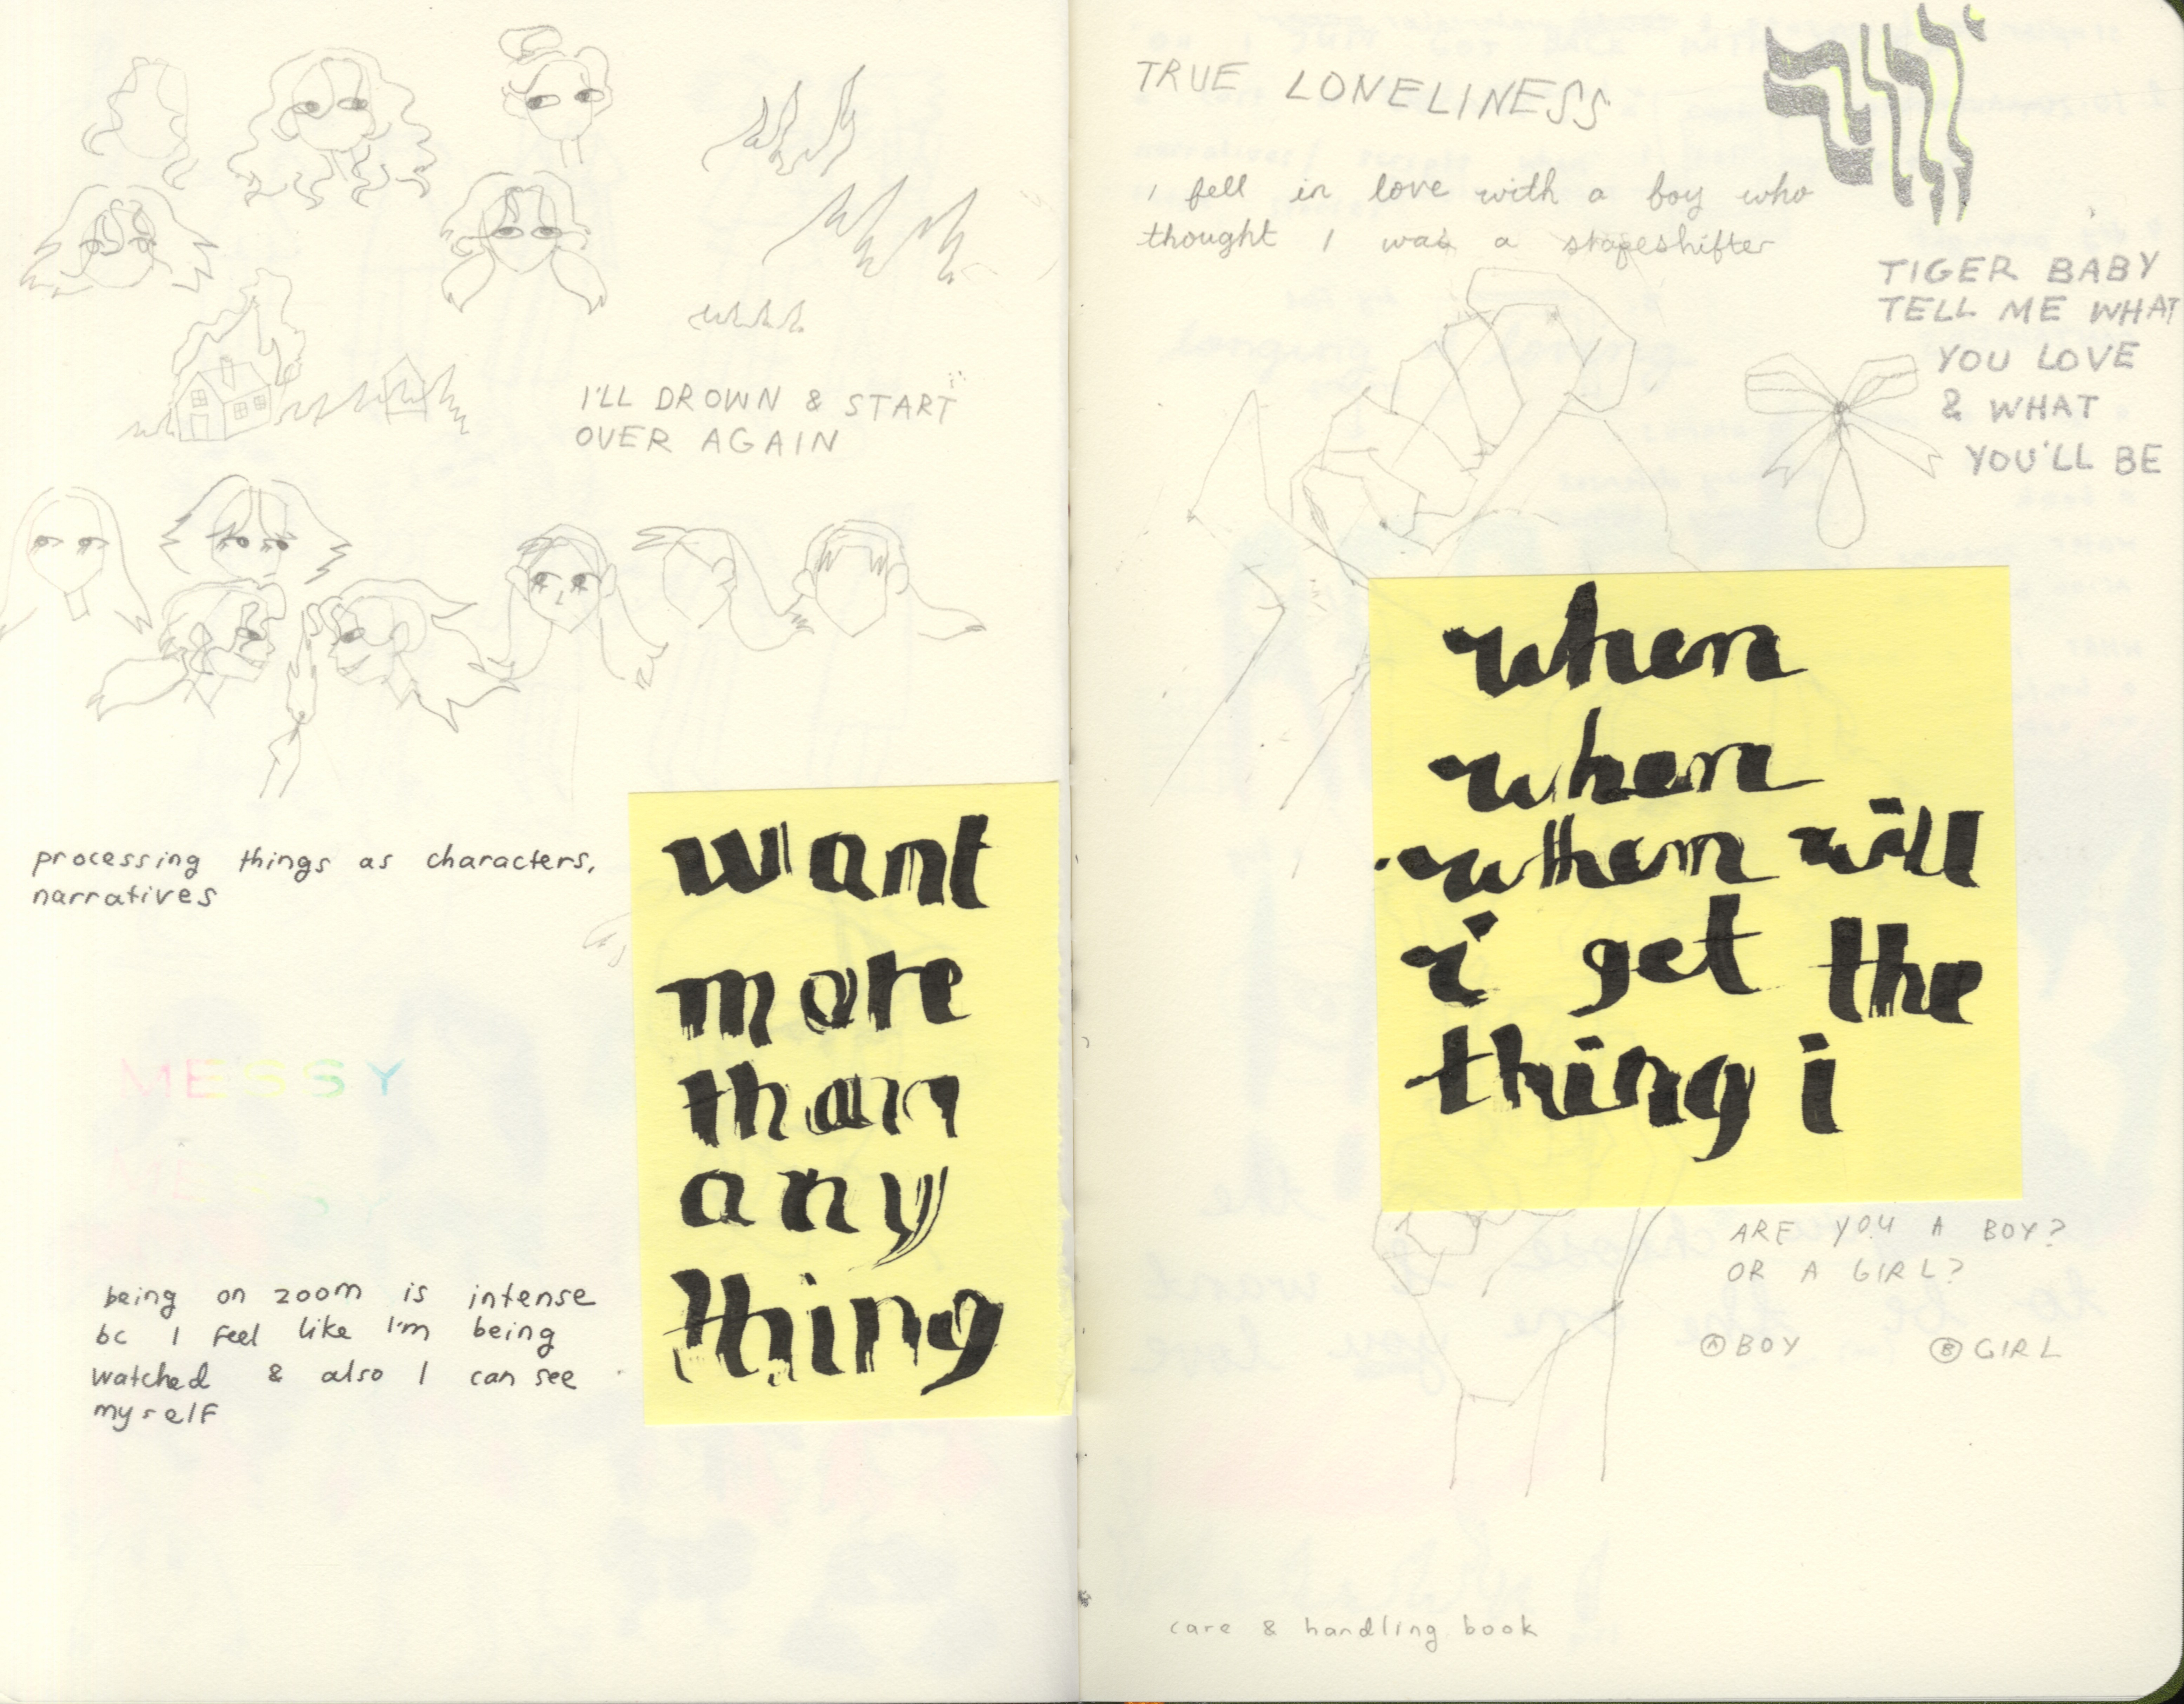 I'LL DROWN & START
OVER AGAIN
processing things as characters,
narratives
want
more
than
any
thing
MESSY
ME
being on zoom is intense
bc I feel like I'm being
watched & also I can see
myself
TRUE LONELINESS
I fell in love with a boy who
thought I was a shapeshifter
TIGER BABY
TELL ME WHAT
YOU LOVE
& WHAT
YOU'LL BE
when
when
when will
i get the
thing i
ARE YOU A BOY?
OR A GIRL?
Ⓐ BOY Ⓑ GIRL
care & handling book